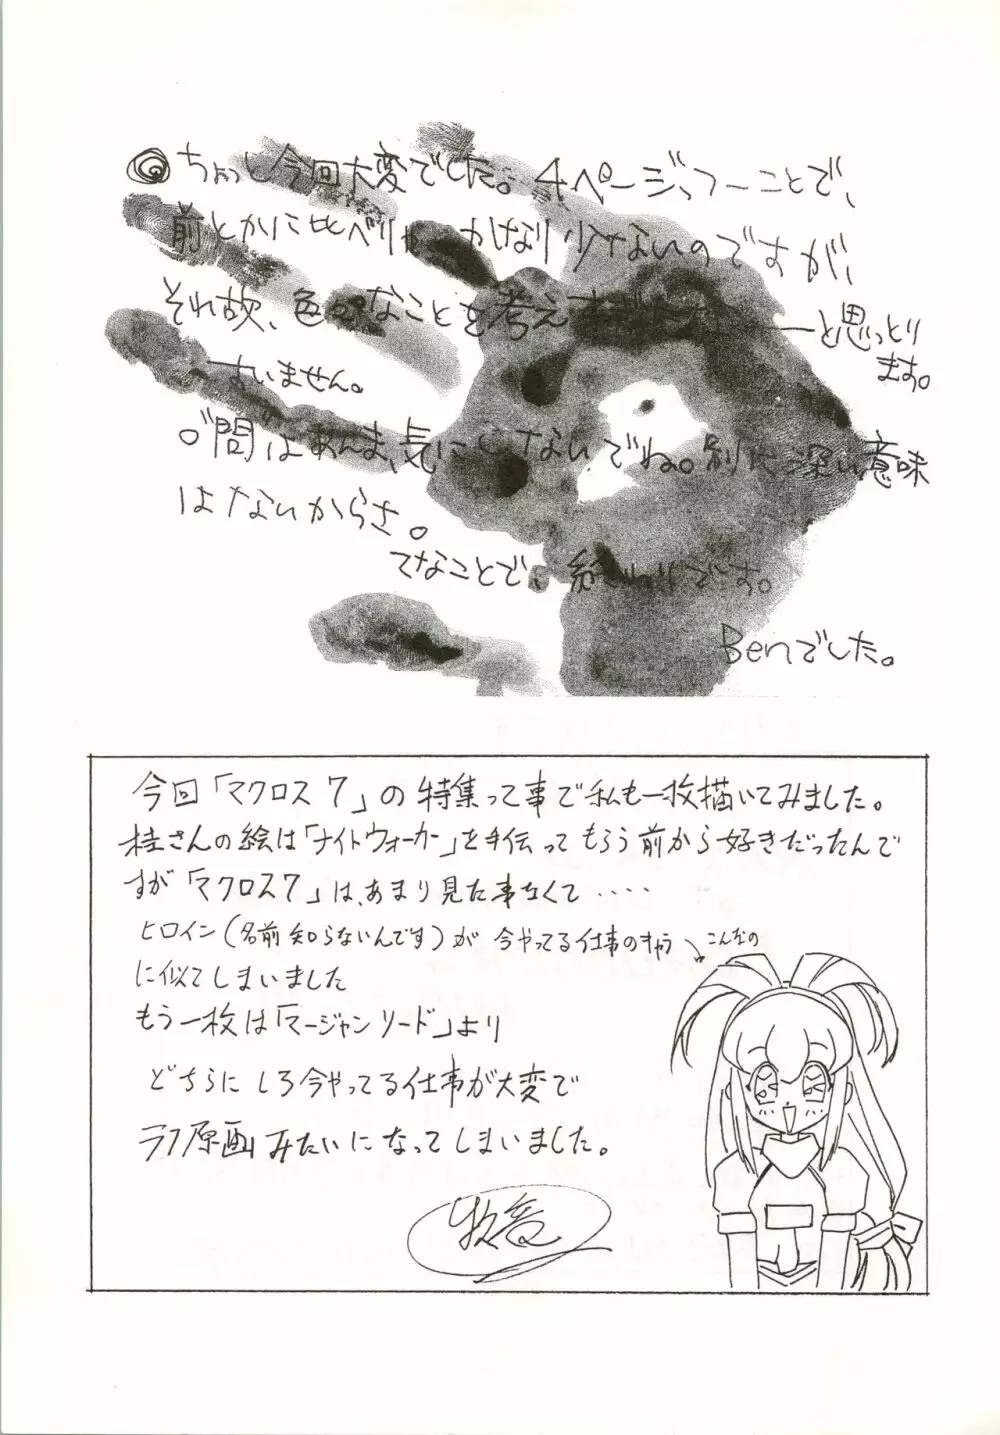 ちょっし今回大変でした。4ページっつーことで、
前とかに比べりゃ かなり少ないのですが、
それ故、色々なことを考え
ーと思っとり
ます。
すいません。
。"間"はあんま、気にしないでね。別に深い意味
はないからさ。
てなことで、終わりです。
Benでした。
今回「マクロス7」の特集って事で私も一枚描いてみました。
桂さんの絵は「ナイトウォーカー」を手伝ってもらう前から好きだったんで
すが「マクロス7」は、あまり見た事なくて‥‥
ヒロイン(名前知らないんです)が 今やってる仕事のキャラ
こんなの
に似てしまいました
もう一枚は「マージャンリード」より
どちらにしろ今やってる仕事が大変で
ラフ原画みたいになってしまいました。